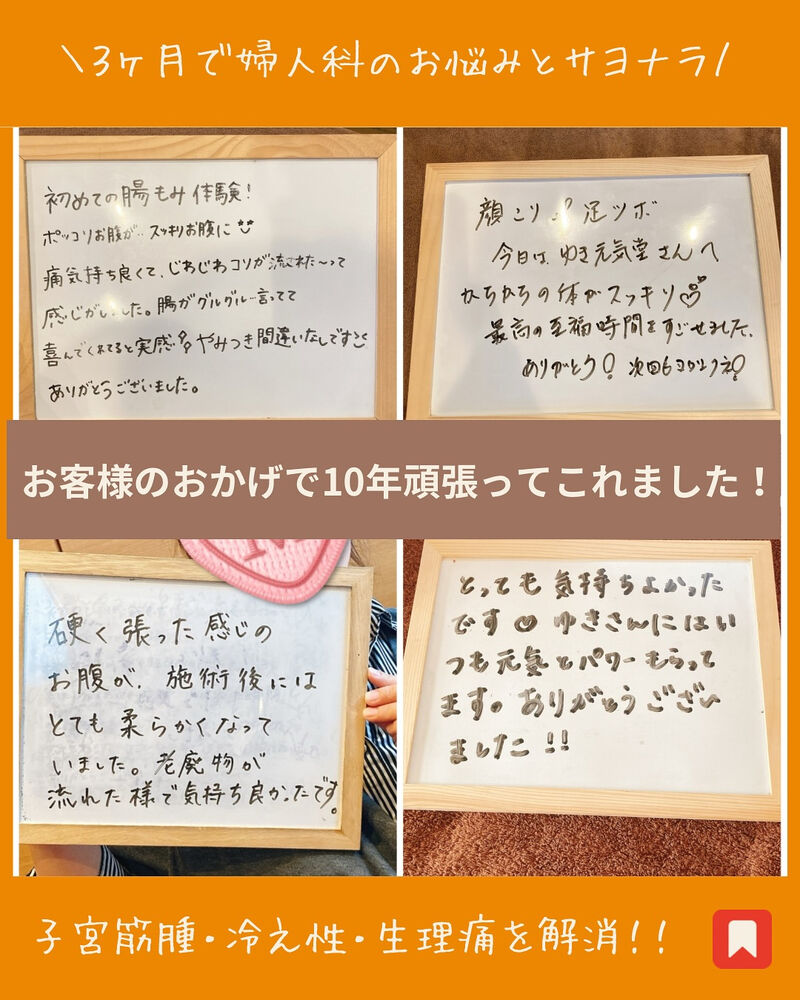 \3ヶ月で婦人科のお悩みとサヨナラ/
初めての腸もみ体験!
ポッコリお腹が‥スッキリお腹に
痛気持ち良くて、じわじわコリが流れた〜って
感じがしました。腸がグルグル‥言ってて
喜んでくれてると実感‥多々やみつき間違いなしです
ありがとうございました。
顔コリ 足ツボ
今日は、ゆき元気堂さんへ
かちかちの体がスッキリ
最高の至福時間をすごせました、
ありがとう! 次回も
お客様のおかげで10年頑張ってこれました!
硬く張った感じの
お腹が、施術後には
とても柔らかくなって
いました。老廃物が
流れた様で気持ち良かったです。
とっても気持ちよかった
です♡ ゆきさんにはい
つも元気とパワーもらって
ます。ありがとうござい
ました!!
子宮筋腫・冷え性・生理痛を解消!!